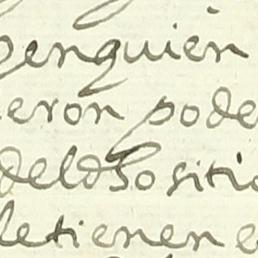 penquien
eron pode
del dho sitio
le tienen e